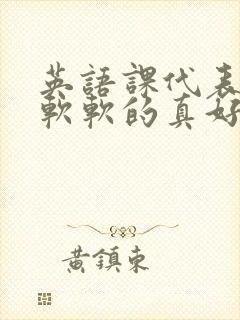 英語課代表
軟軟的真好
黃鎮東